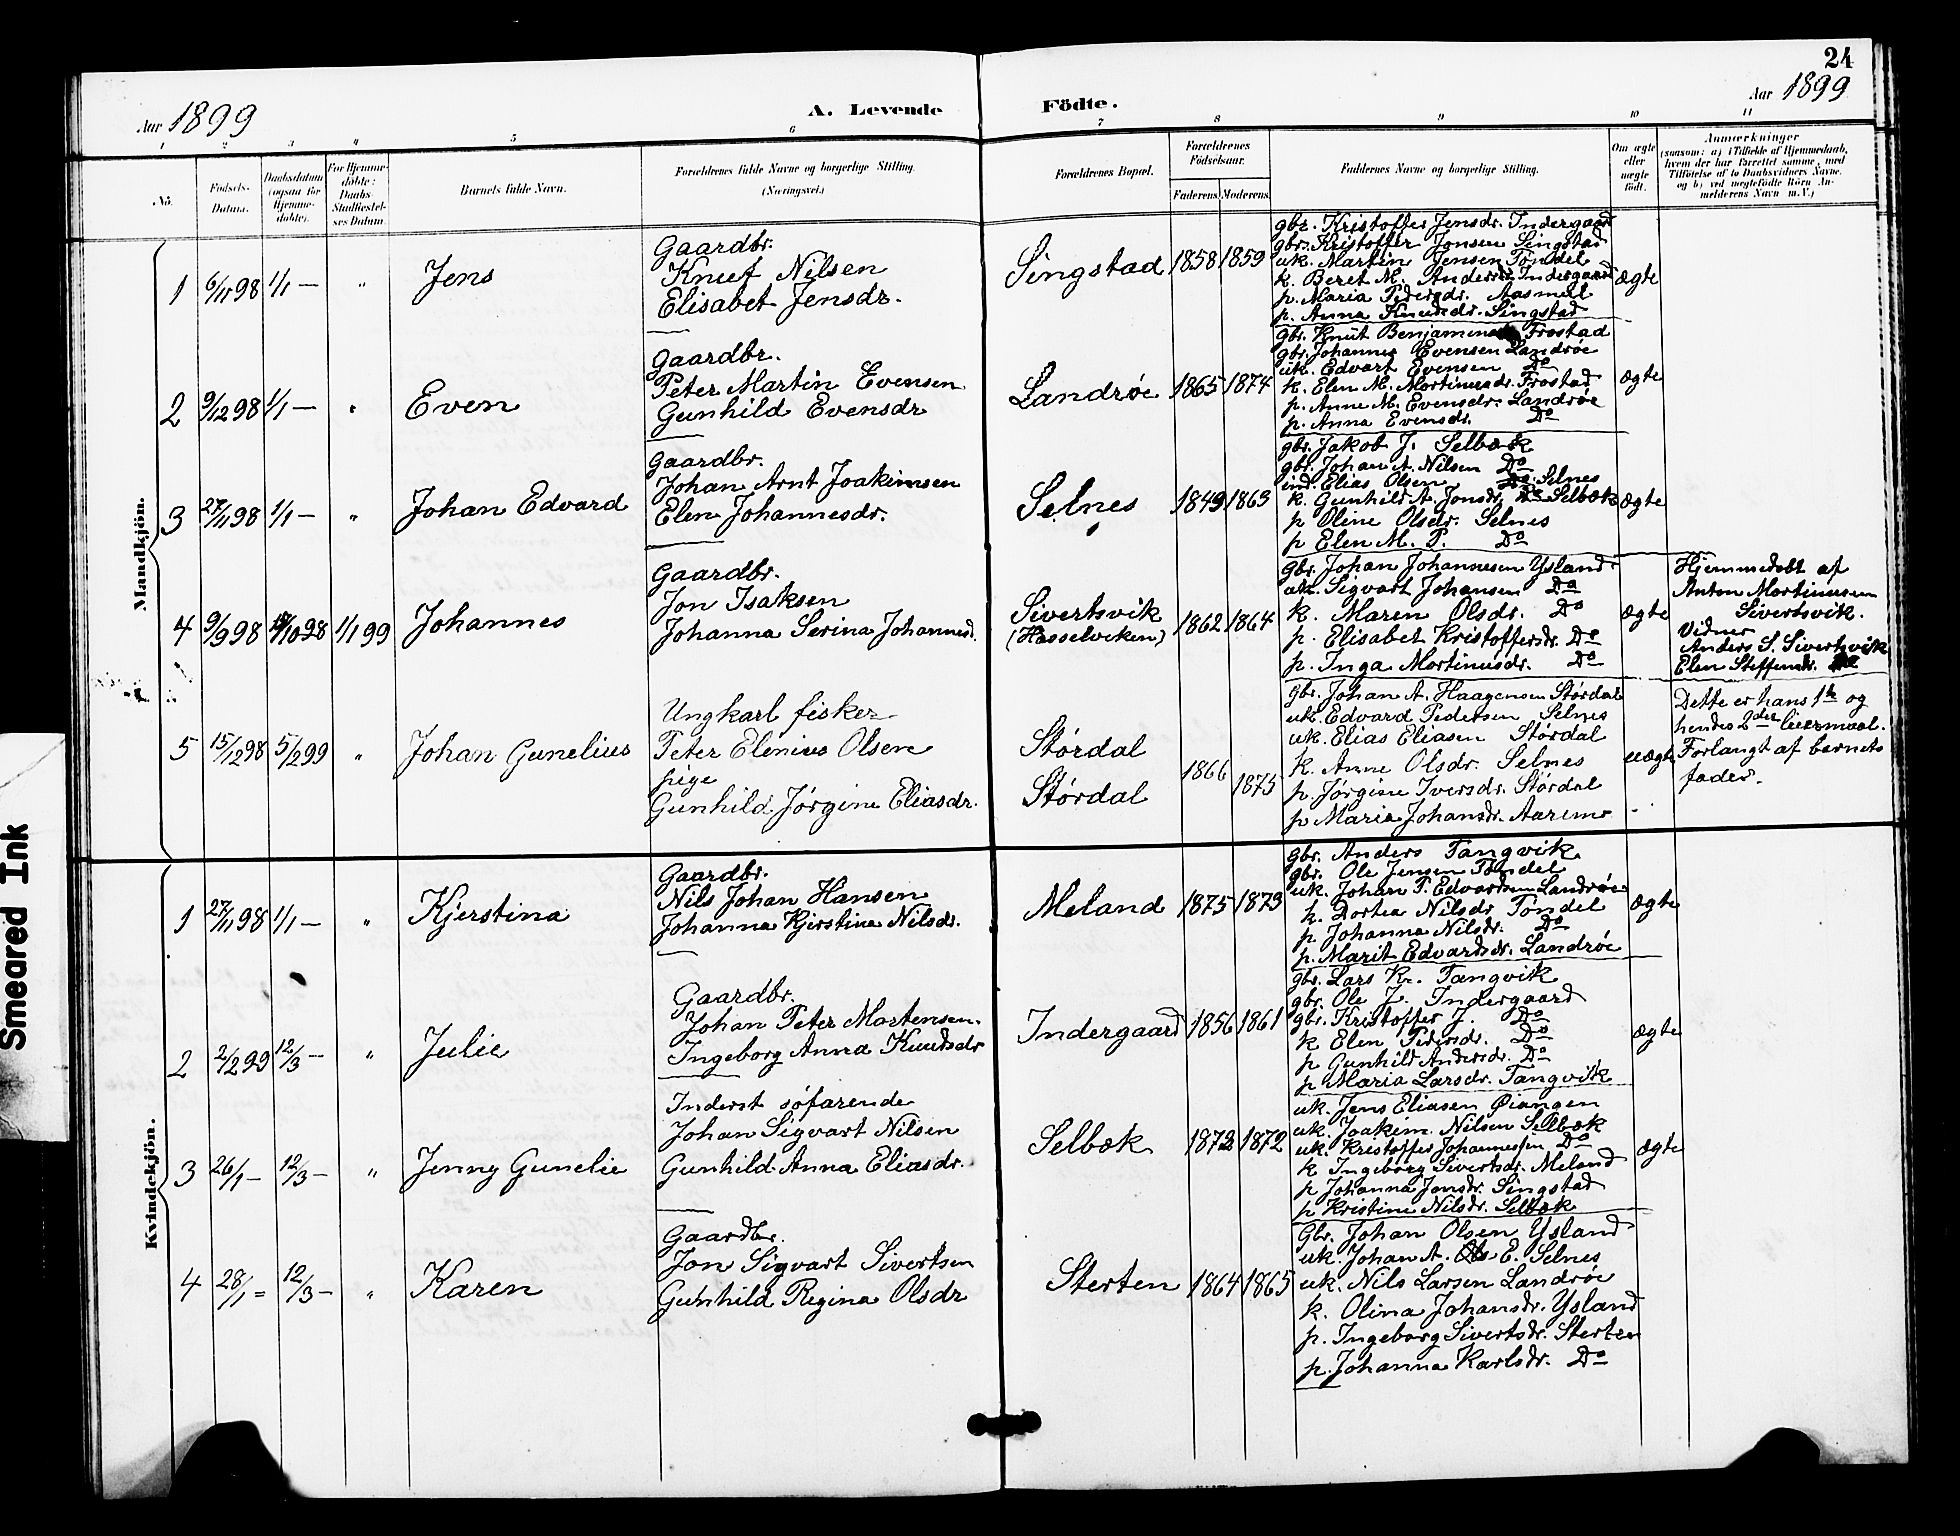 24
Aar 1899
A. Levende Födte.
Aar 1899
1 2 3 4 5 6 7 8 9 10 11
No.
Födsels-Datum.
Daabsdatum (ogsaa for Hjemmedöbte).
For Hjemmedöbte: Daabs Stadfæstelses Datum.
Barnets fulde Navn.
Forældrenes fulde Navne og borgerlige Stilling.
(Næringsvei.)
Forældrenes Bopæl.
Forældrenes Födselsaar.
Faderens. Moderens.
Faddernes Navne og borgerlige Stilling.
Om ægte eller uægte födt.
Anmærkninger
(saasom: a) i Tilfælde af Hjemmedaab, hvem der har forrettet samme, med Tilföielse af to Daabsvidners Navne, og b) ved uægtefödte Börn Anmelderens Navn m. V.)
Mandkjön.
1 6/11 98 1/1 — " Jens
Gaardbr.
Knut Nilsen
Elisabet Jensdr.
Singstad 1858 1859
gbr. Kristoffer Jensdr. Indergaard
gbr. Kristoffer Jonsen Singstad
uk. Martin Jensen Tøndel
k. Beret M. Andersdr. Indergaard
p. Maria Pedersdr. Aasmul
p. Anna Knudsdr. Singstad
ægte
2 9/12 98 1/1 — " Even
Gaardbr.
Peter Martin Evensen
Gunhild Evensdr
Landrøe 1865 1874
gbr. Knut Benjamins Frostad
gbr. Johannes Evensen Landrøe
uk. Edvart Evensen Do
k. Elen M. Mortinusdr. Frostad
p. Anne M. Evensdr. Landrøe
p. Anna Evensdr. Do
ægte
3 27/11 98 1/1 — " Johan Edvard
Gaardbr.
Johan Arnt Joakimsen
Elen Johannesdr.
Selnes 1849 1863
gbr. Jakob J. Selbæk
gbr. Johan A. Nilsen Do
ind. Elias Olsen Selnes
k. Gunhild A. Jonsdr. Selbæk
p Oline Olsdr. Selnes
p Elen M. P. Do
ægte
4 9/9 98 /10 98 1/1 99 Johannes
Gaardbr.
Jon Isaksen
Johanna Serina Johannesd.
Sivertsvik
(Hasselviken) 1862 1864
gbr. Johan Johannesen Ysland
uk. Sigvart Johansen Do
k. Maren Olsdr. Do
p. Elisabet Kristoffersdr. Do
p. Inga Mortinusdr. Do
ægte
Hjemmedøbt af
Anton Mortinussen
Sivertsvik.
Vidner
Anders S. Sivertsvik
Elen Steffensdr. Do
5 15/12 98 5/2 99 " Johan Gunelius
Ungkarl fisker
Peter Elenius Olsen
pige
Gunhild Jørgine Eliasdr.
Størdal
Størdal
1866 1875
gbr. Johan A. Haagensen Størdal
uk. Edvard Pedersen Selnes
uk. Elias Eliasen Størdal
k. Anne Olsdr. Selnes
p. Jørgine Iversdr. Størdal
p Maria Johansdr. Aarem
uægte
Dette er hans 1te og
hendes 2det leiermaal.
Forlangt af barnets
fader.
Kvindekjön.
1 27/11 98 1/1 — " Kjerstina
Gaardbr.
Nils Johan Hansen
Johanna Kjerstina Nilsdr.
Meland 1875 1873
gbr. Anders Tangvik
gbr. Ole Jensen Tøndel
uk. Johan P. Edvardsen Landrøe
k. Dortea Nilsdr Tøndel
p Johanna Nilsdr. Do
p. Marit Edvardsdr. Landrøe
ægte
2 2/2 99 12/3 — " Julie
Gaardbr.
Johan Peter Mortensen.
Ingeborg Anna Knudsdr
Indergaard 1856 1861
gbr. Lars Kr. Tangvik
gbr. Ole J. Indergaard
gbr. Kristoffer J. Do
k Elen Pedersdr. Do
p Gunhild Andersdr. Do
p Maria Larsdr. Tangvik
ægte
3 26/1 — 12/3 — " Jenny Gunelie
Inderst søfarende
Johan Sigvart Nilsen
Gunhild Anna Eliasdr.
Selbæk 1872 1872
uk. Jens Eliasen Øiangen
uk. Joakim Nilsen Selbæk
uk. Kristoffer Johannessen Do
k Ingeborg Sivertsdr. Meland
p Johanna Jonsdr. Singstad
p Kristine Nilsdr. Selbæk
ægte
4 28/1 = 12/3 — " Karen
Gaardbr.
Jon Sigvart Sivertsen
Gunhild Regina Olsdr
Sterten 1864 1865
Gbr. Johan Olsen Ysland
uk. Johan A. E. Selnes
uk. Nils Larsen Landrøe
k. Olina Johansdr. Ysland
p. Ingeborg Sivertsdr. Sterten
p. Johanna Karlsdr. Do
Smeared Ink